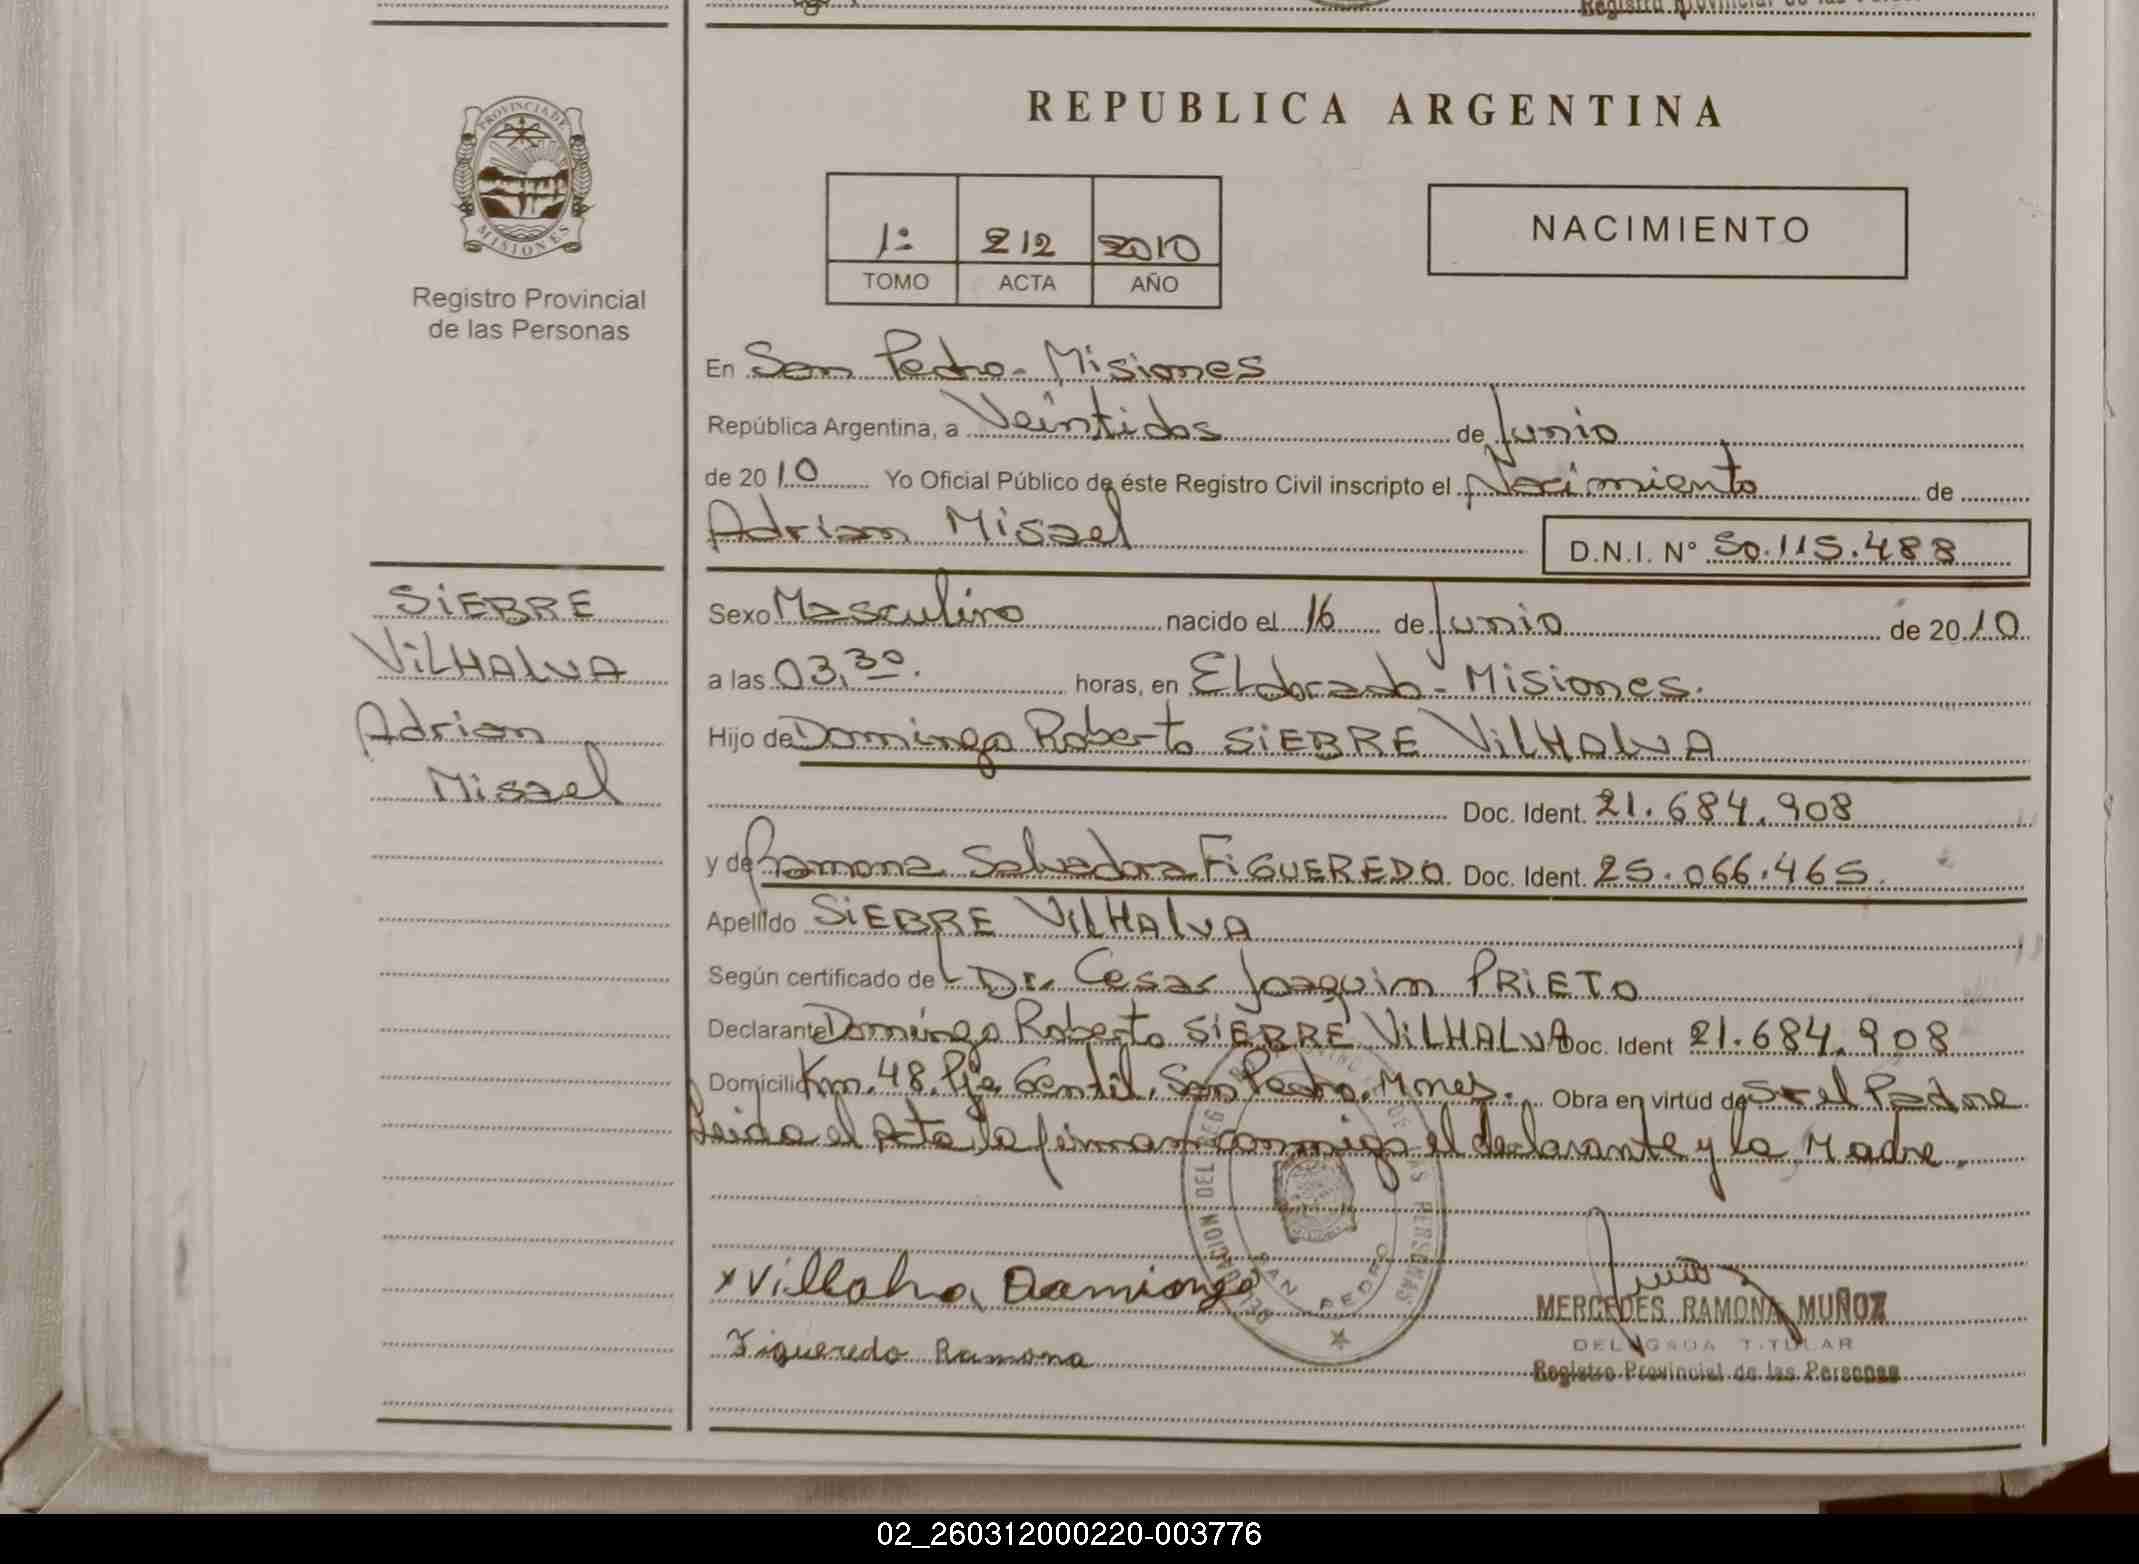 Registro Provincial de las Person
REPUBLICA ARGENTINA
PROVINCIA DE
MISIONES
Registro Provincial
de las Personas
1º 212 2010
TOMO ACTA AÑO
NACIMIENTO
En San Pedro - Misiones
República Argentina, a Veintidos de Junio
de 2010 Yo Oficial Público de éste Registro Civil inscripto el Nacimiento de
Adrian Misael D.N.I. Nº 50.115.488
SiEBRE
ViLHALVA
Adrian
Misael
Sexo Masculino nacido el 16 de Junio de 2010
a las 03,30. horas, en ELdorado - Misiones.
Hijo de Domingo Roberto SiEBRE ViLHALVA
Doc. Ident. 21.684.908
y de Ramona Salvadora FiGUEREDO Doc. Ident. 25.066.465
Apellido SiEBRE ViLHALVA
Según certificado de Dr. Cesar Joaquim PRiETO
Declarante Domingo Roberto SiEBRE ViLHALVA Doc. Ident 21.684.908
Domicilio Km. 48. Pje Gentil. San Pedro. Mnes. Obra en virtud de Ser el Padre
Leida el Acta la firman conmigo el declarante y la Madre.
DELEGACION DEL REG. PROVINCIAL DE LAS PERSONAS
SAN PEDRO
x Villalva Domingo
Figueredo Ramona
MERCEDES RAMONA MUÑOZ
DELEGADA TITULAR
Registro Provincial de las Personas
02_260312000220-003776